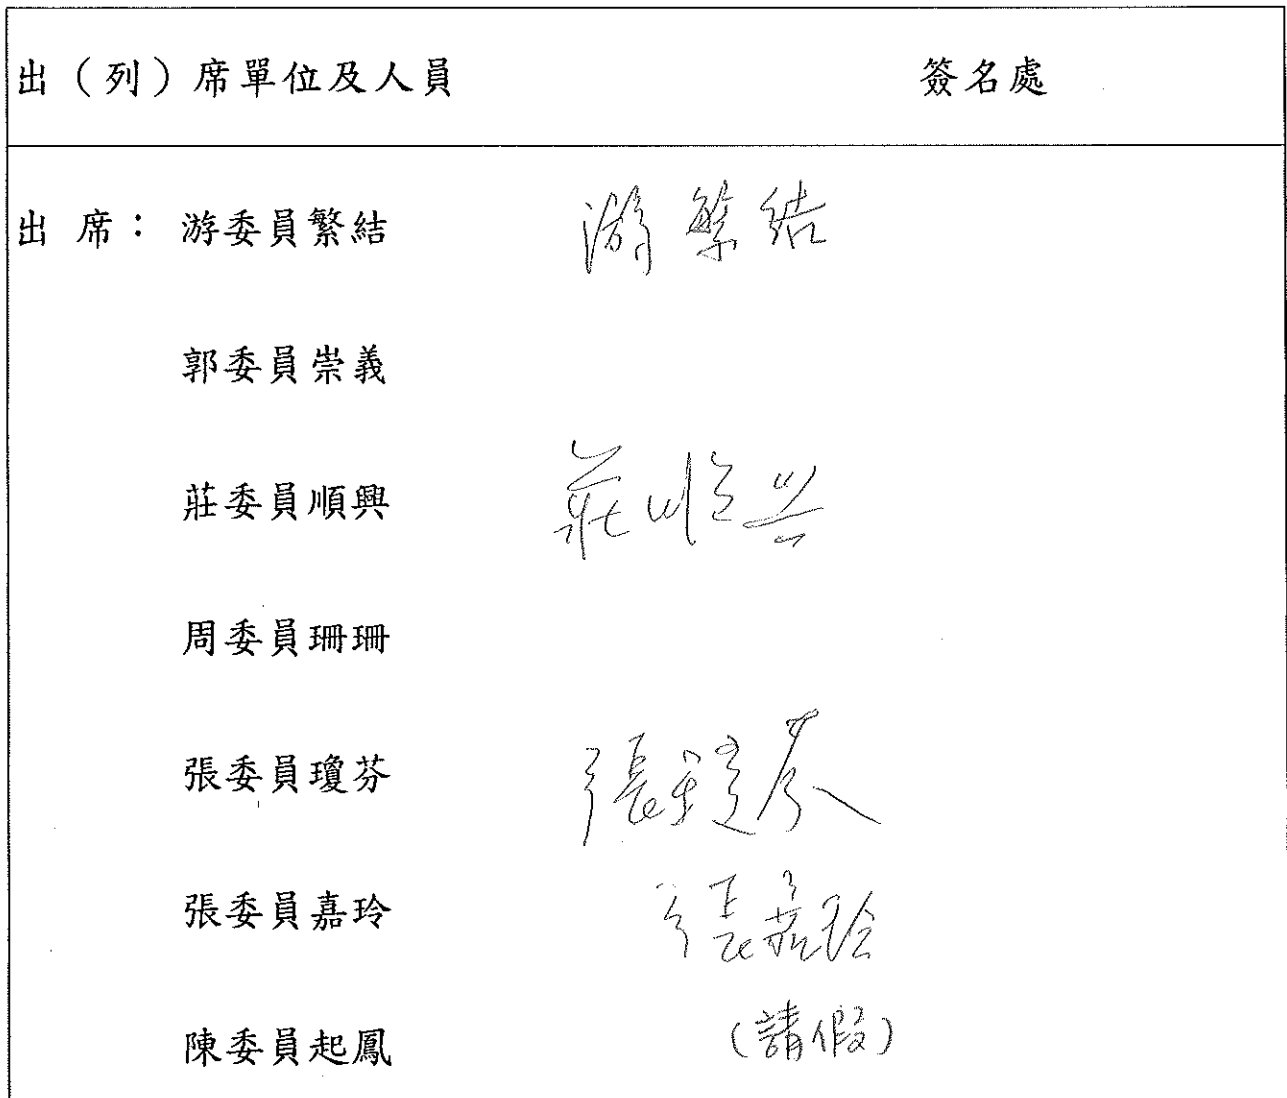 出（列）席單位及人員 簽名處
出 席： 游委員繁結 游繁結
郭委員崇義
莊委員順興 莊順興
周委員珊珊
張委員瓊芬 張瓊芬
張委員嘉玲 張嘉玲
陳委員起鳳 (請假)